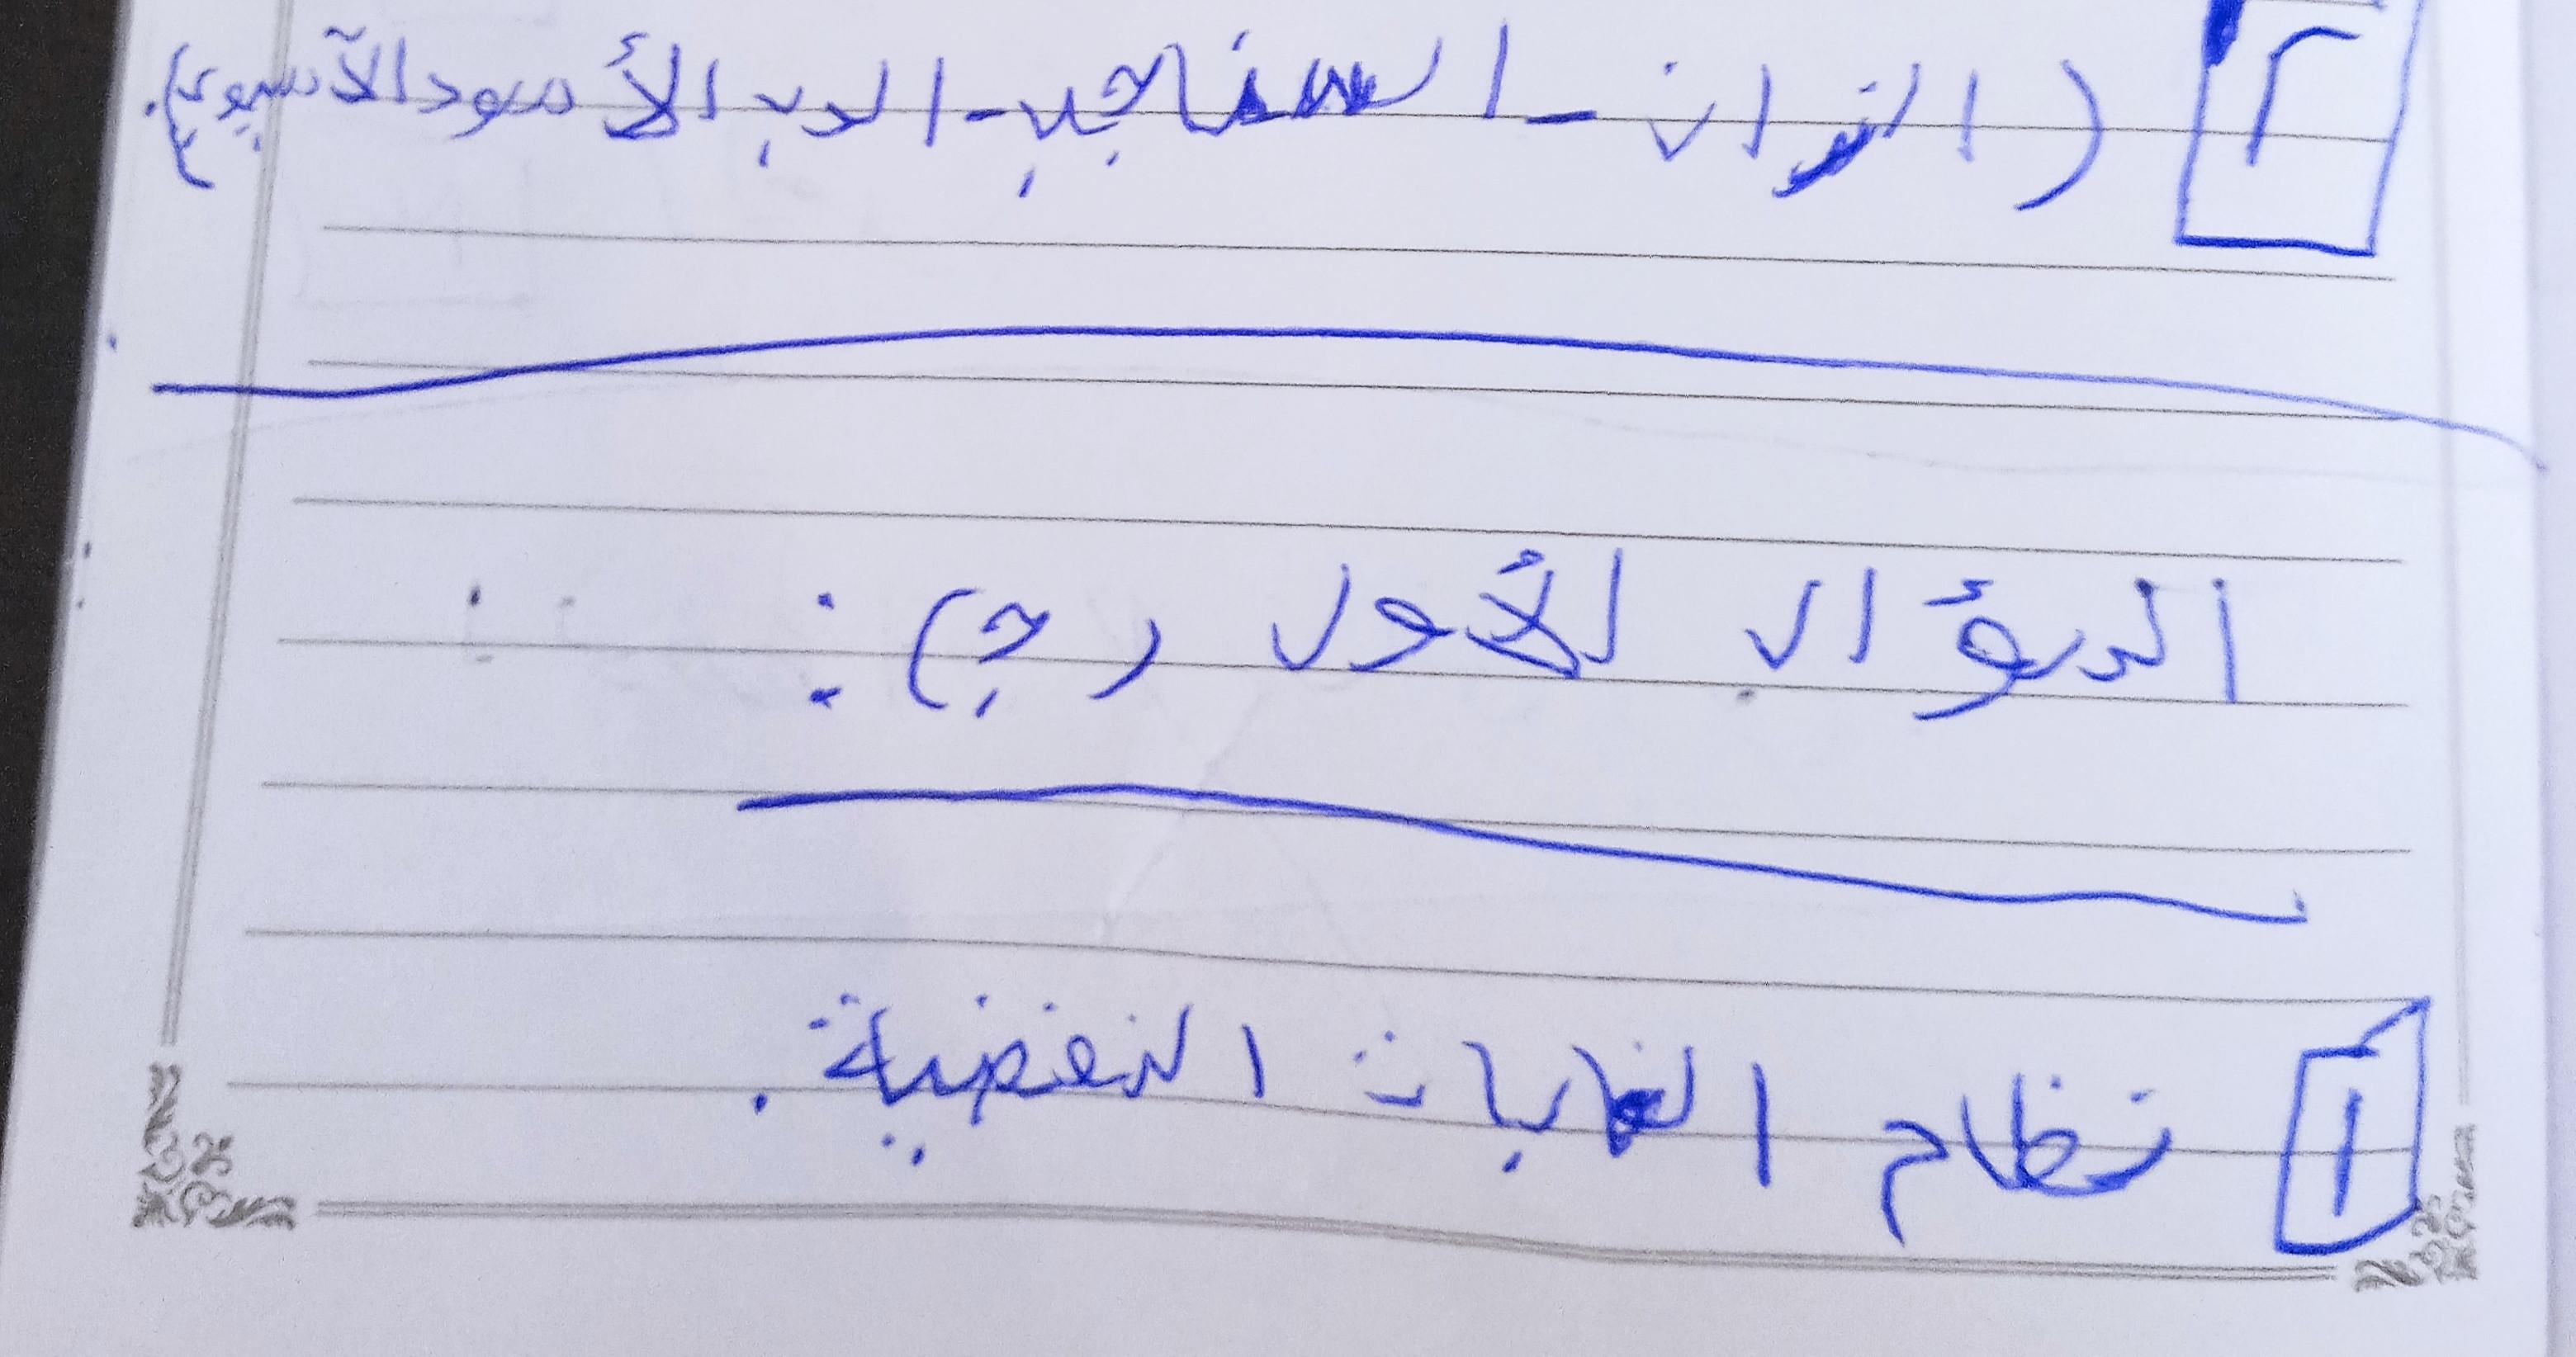 ٢ (الزان - السناجب - الدب الأسود الآسيوي).
السؤال الأول (جـ):
١ نظام الغابات النفضية.